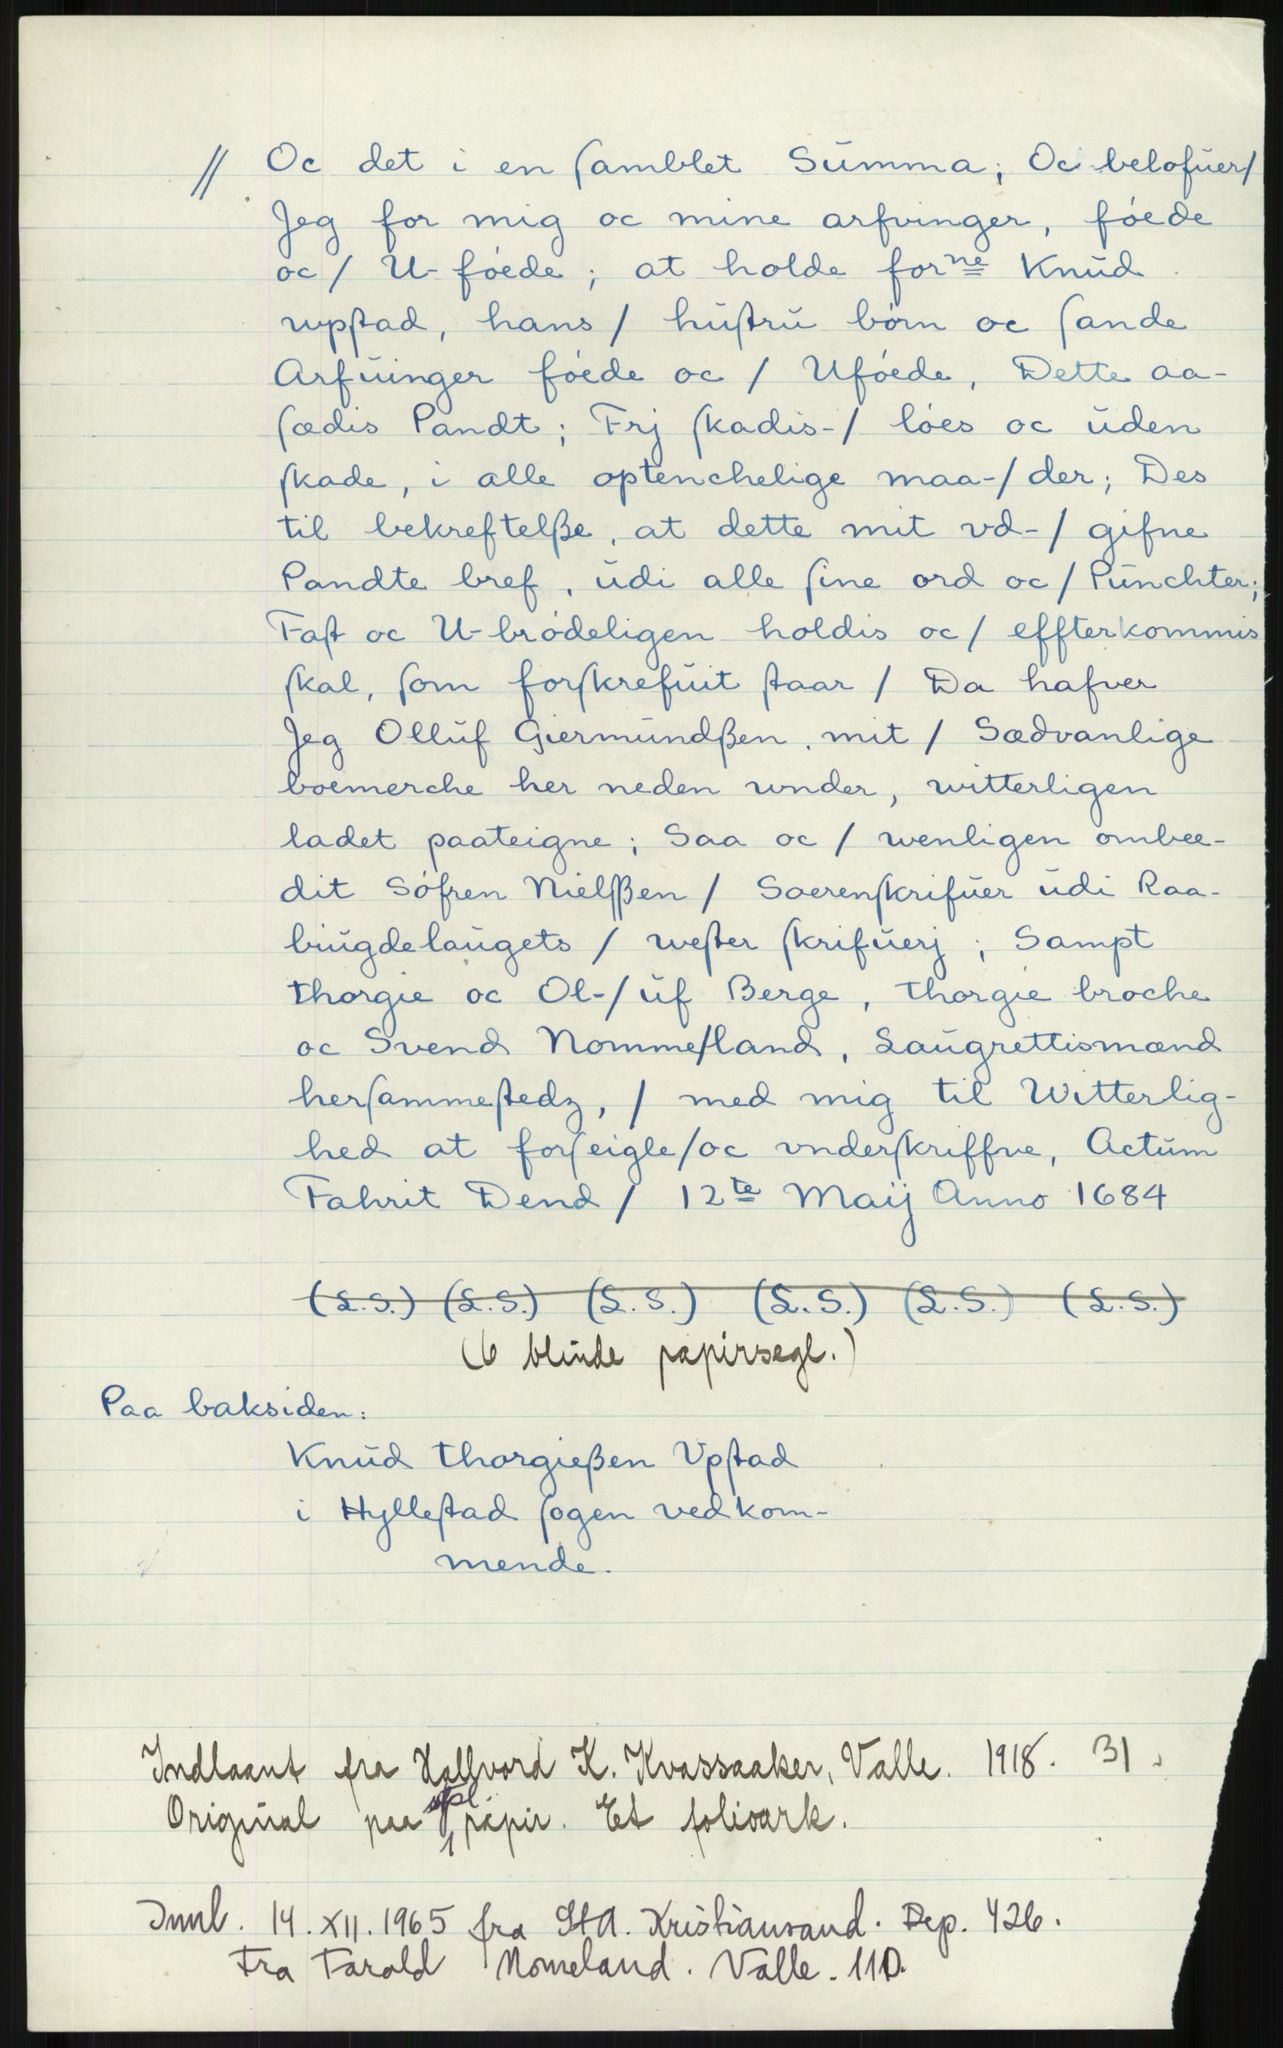 // Oc det i en ſamblet Summa; Oc belofuer/
Jeg for mig oc mine arfvinger, føede
oc/ U-føede; at holde forne Knud
wpſtad, hans / huſtru børn oc ſande
Arfuinger føede oc / Uføede, Dette aa-
ſædis Pandt; Frj ſkadis-/ løes oc uden
ſkade, i alle optenchelige maa-/ der; Des
til bekreftelße, at dette mit vd-/ gifne
Pandte bref, udi alle ſine ord oc / Punchter;
Faſt oc U-brødeligen holdis oc / effterkommis
ſkal, ſom forſkrefuit ſtaar / Da hafver
Jeg Olluf Giermundßen, mit / Sædvanlige
boemerche her neden wnder, witterligen
ladet paateigne; Saa oc / wenligen ombee-
dit Søfren Nielſßen / Soerenſkrifuer udi Raa-
biugdelaugets / weſter ſkrifuerj; Sampt
thorgie oc Ol-/ uf Berge, thorgie broche
oc Svend Nommeſland, Laugrettismænd
herſammeſtedz, / med mig til Witterlig-
hed at forſeigle/oc vnderſkriffve, Actum
Fahrit Dend / 12te Maij Anno 1684
(L.S.) (L.S.) (L.S.) (L.S.) (L.S.) (L.S.)
(6 blinde papirsegl.)
Paa baksiden:
Knud thorgießen Vpſtad
i Hylleſtad ſogen vedkom-
mende.
Indlaant fra Hallvord K. Kvassaaker, Valle. 1918. 31.
Original paa stpl papir. Et folioark.
Innl. 14.XII.1965 fra StA. Kristiansand. Dep. 426.
Fra Tarald Nomeland. Valle. 110.